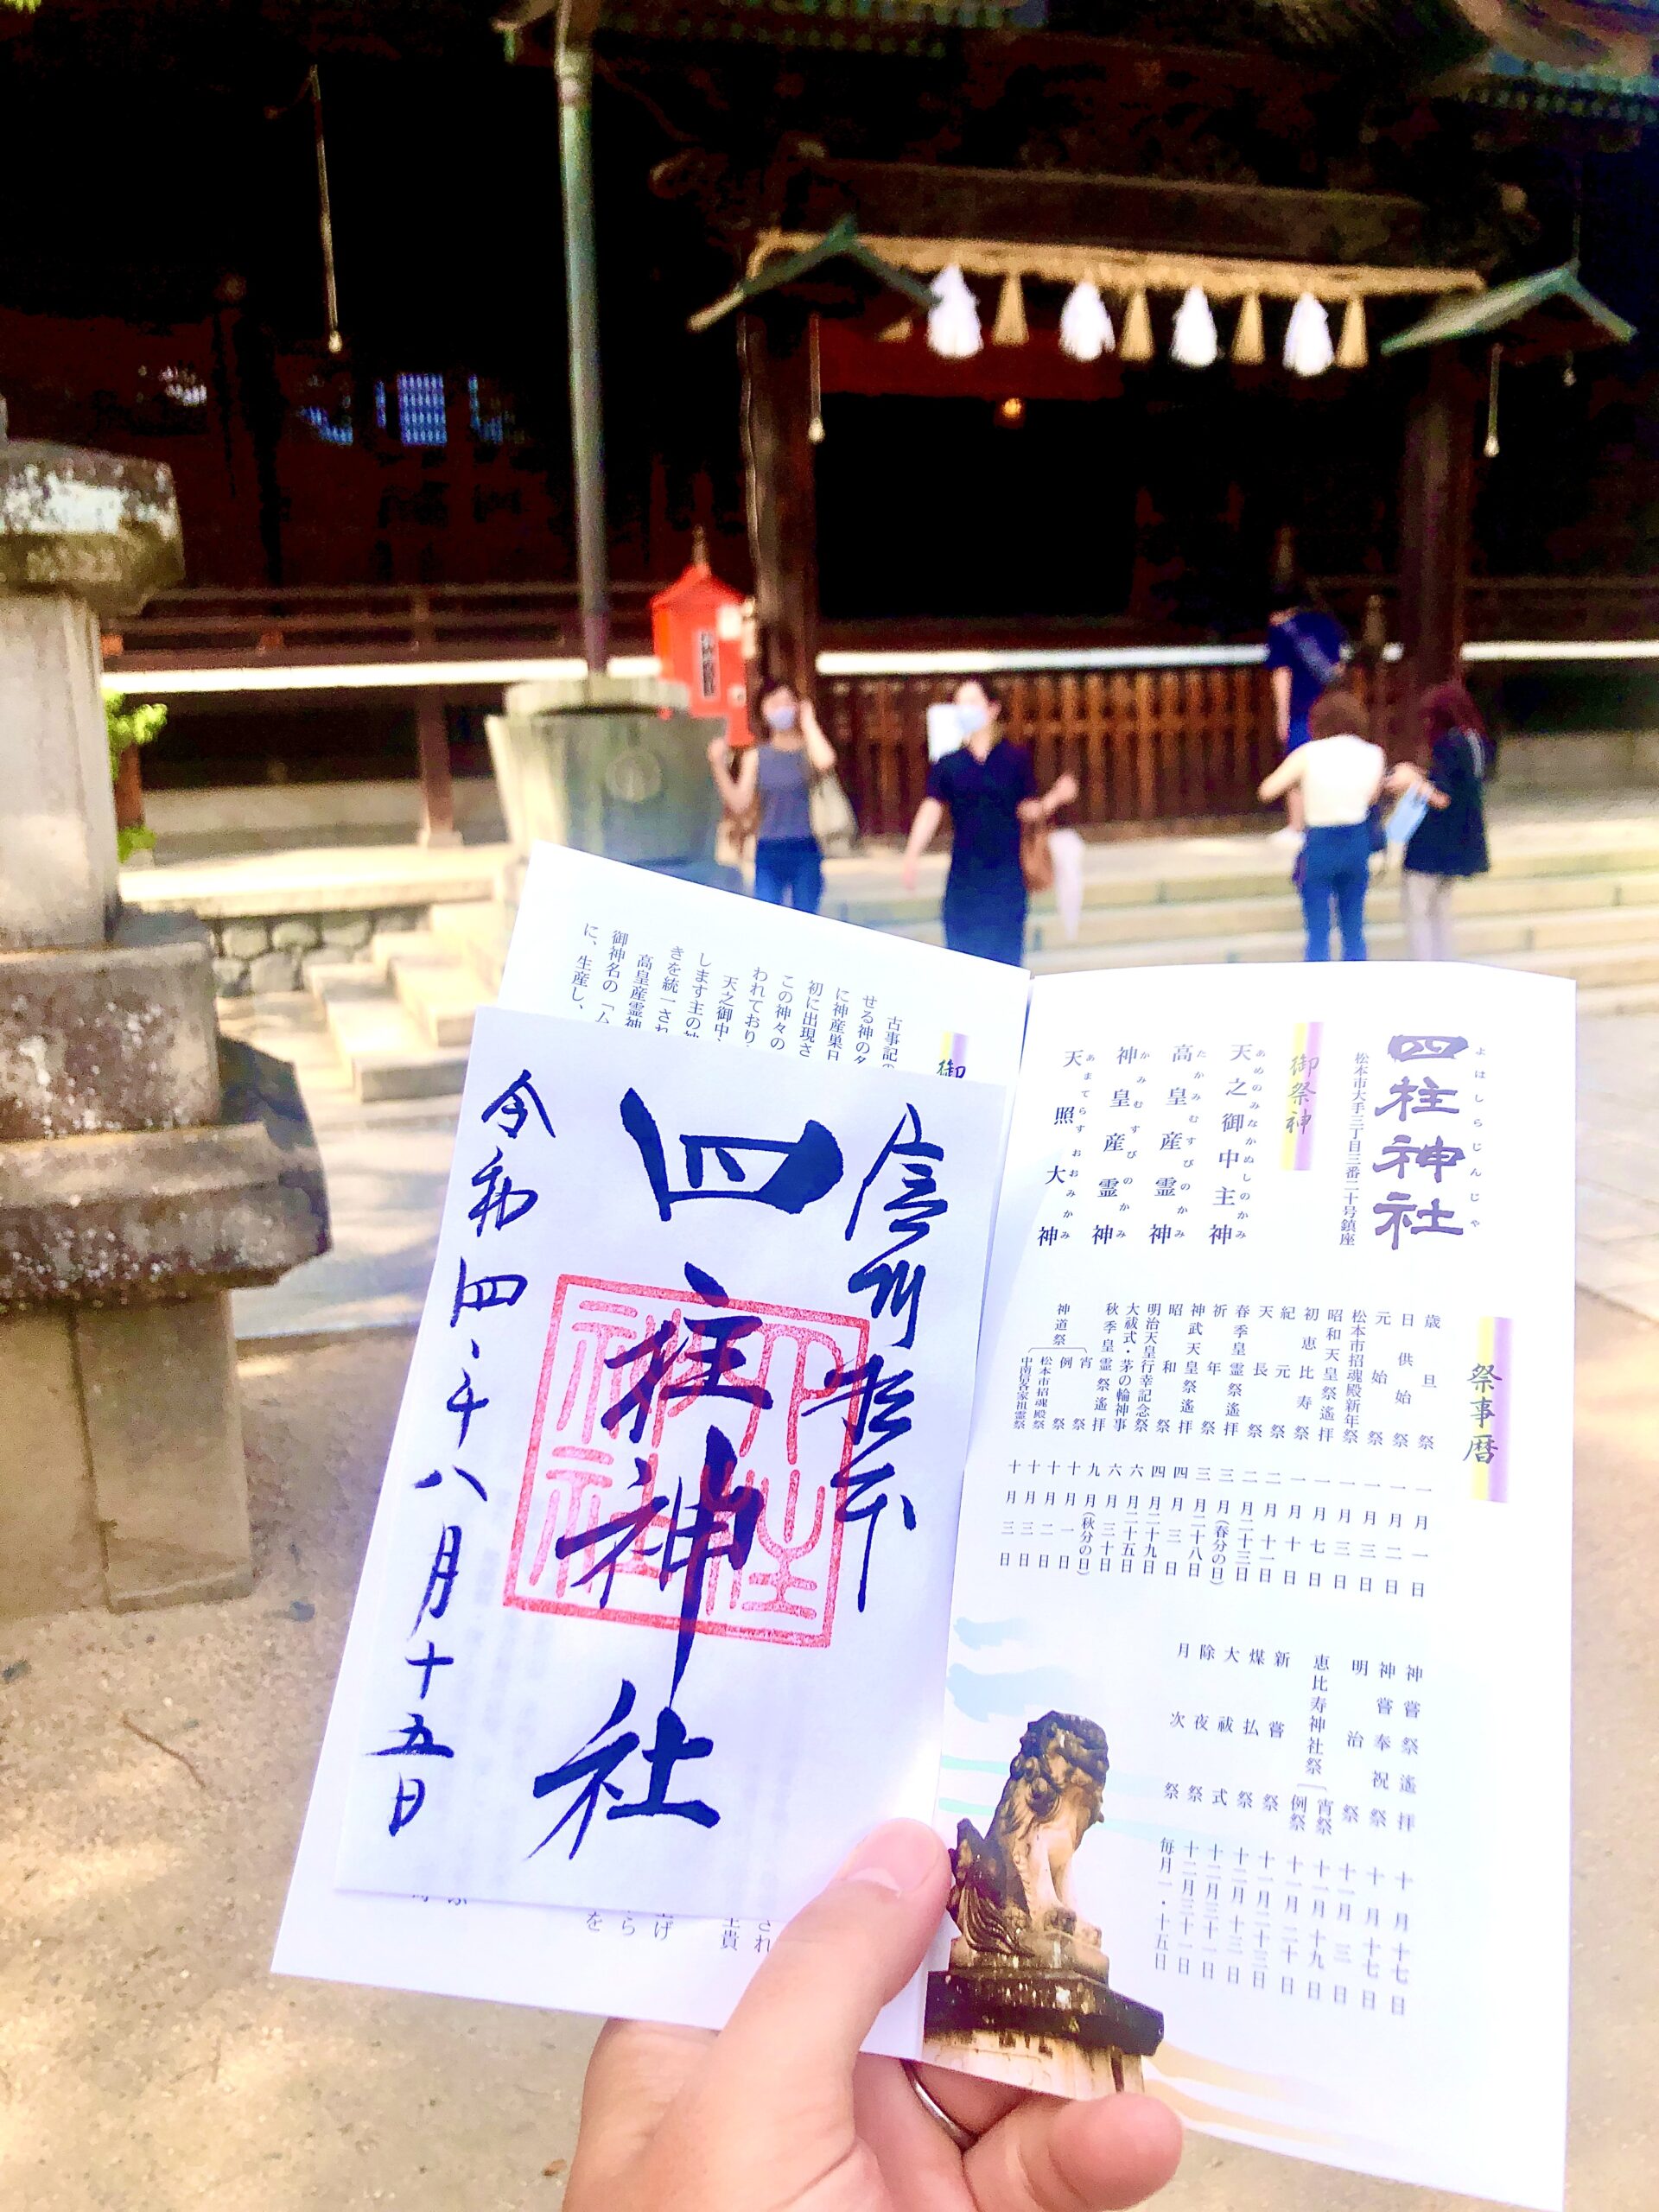 四柱神社
よはしらじんじゃ
松本市大手三丁目三番二十号鎮座
御祭神
天之御中主神
あめのみなかぬしのかみ
高皇産霊神
たかみむすびのかみ
神皇産霊神
かみむすびのかみ
天照大神
あまてらすおおみかみ
祭事暦
歳旦祭 一月一日
日供始祭 一月二日
元始祭 一月三日
松本市招魂殿新年祭 一月三日
昭和天皇祭遙拝 一月七日
初恵比寿祭 一月十日
紀元祭 二月十一日
天長祭 二月二十三日
春季皇霊祭遙拝 三月(春分の日)
祈年祭 三月二十八日
神武天皇祭遙拝 四月三日
昭和祭 四月二十九日
明治天皇行幸記念祭 六月二十五日
大祓式・茅の輪神事 六月三十日
秋季皇霊祭遙拝 九月(秋分の日)
神道祭
宵祭 十月一日
例祭 十月二日
松本市招魂殿祭 十月三日
中南信各家祖霊祭 十月三日
神嘗祭遙拝 十月十七日
神嘗奉祝祭 十月十七日
明治祭 十一月三日
恵比寿神社祭
宵祭 十一月十九日
例祭 十一月二十日
新嘗祭 十一月二十三日
煤払祭 十二月十三日
大祓式 十二月三十一日
除夜祭 十二月三十一日
月次祭 毎月一・十五日
御
古事記の
せる神のタ
に神産巣日
初に出現さ
この神々の
われており
天之御中
します主の神
きを統一され
高皇産霊神
御神名の「ム
に、生産し、
信州松本
四柱神社
令和四年八月十五日
四柱
神社